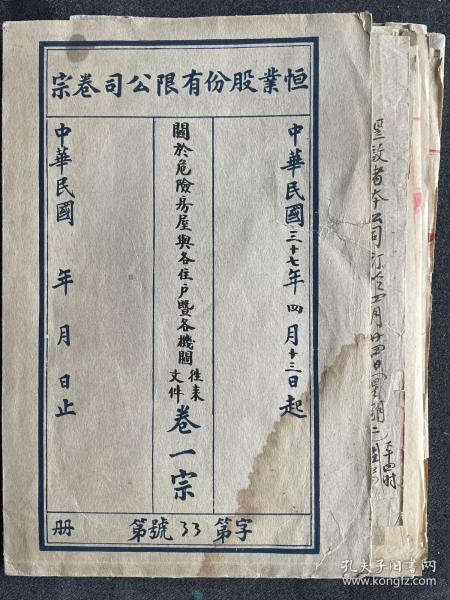 恒業股份有限公司卷宗
中華民國三十七年四月十三日起
關於危險房屋與各住戶暨各機關往来文件卷一宗
中華民國 年 月 日止
字第33號第 册
孔夫子旧书网
book.kongfz.com